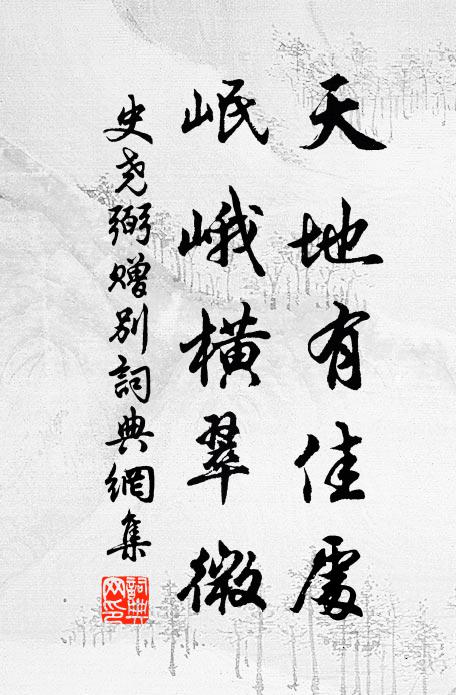 天地有佳處
岷峨橫翠微
史尧弼赠别詞典網集